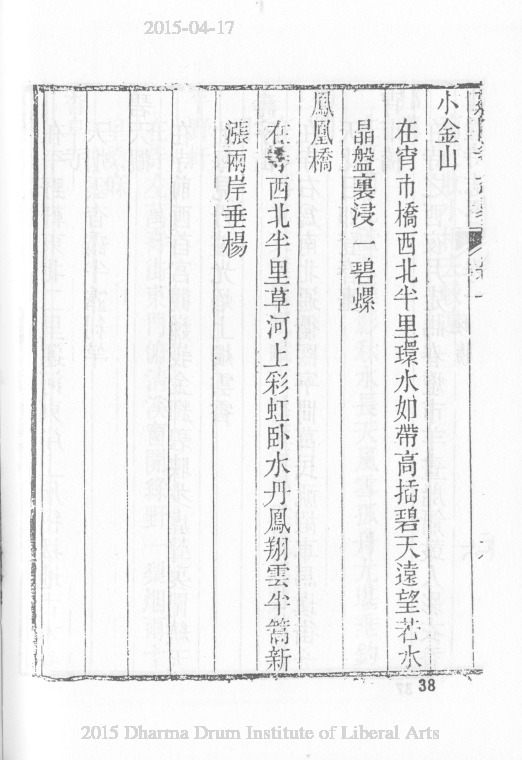 2015-04-17
小金山
在宵市橋西北半里環水如帶高插碧天遠望若水
晶盤裏浸一碧螺
鳳凰橋
在寺西北半里草河上彩虹卧水丹鳳翔雲半篙新
漲兩岸垂楊
38
2015 Dharma Drum Institute of Liberal Arts